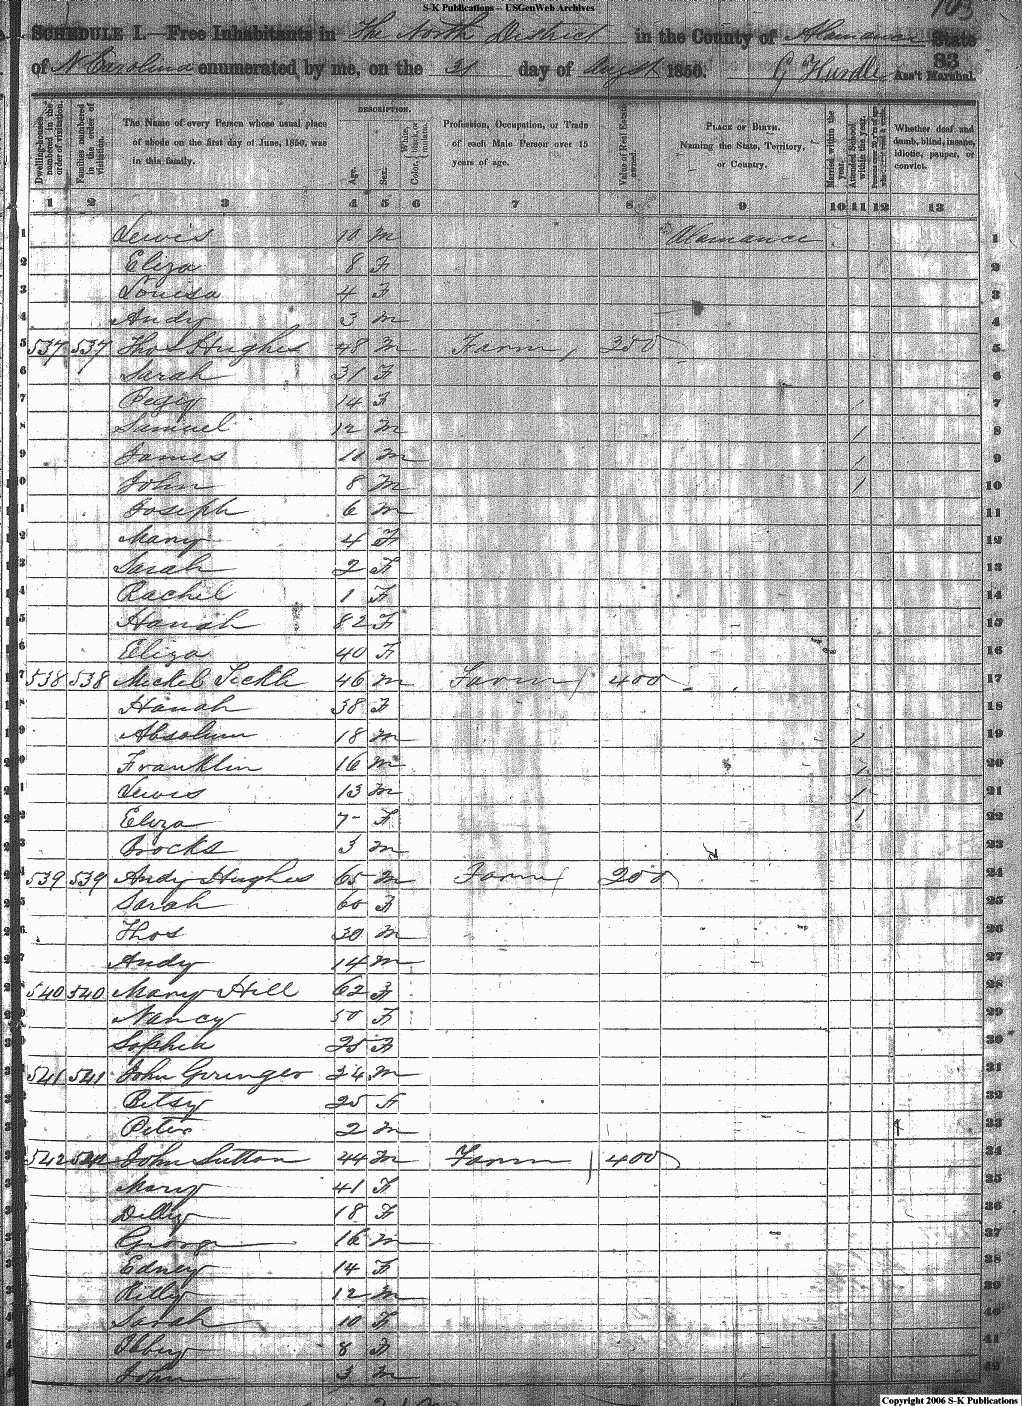 S-K Publications -- USGenWeb Archives
103
SCHEDULE I.—Free Inhabitants in The North District in the County of Alamance State
of N Carolina enumerated by me, on the 31 day of Augst 1850. G Hurdle Ass't Marshal.
83
DESCRIPTION.
Dwelling-houses numbered in the order of visitation.
Families numbered in the order of visitation.
The Name of every Person whose usual place of abode on the first day of June, 1850, was in this family.
Age.
Sex.
Color, White, black, or mulatto.
Profession, Occupation, or Trade of each Male Person over 15 years of age.
Value of Real Estate owned.
PLACE OF BIRTH. Naming the State, Territory, or Country.
Married within the year.
Attended School within the year.
Persons over 20 y'rs of age who cannot read & write.
Whether deaf and dumb, blind, insane, idiotic, pauper, or convict.
1 2 3 4 5 6 7 8 9 10 11 12 13
1 Lewis 10 m Alamance 1
2 Eliza 8 F 2
3 Louisa 4 F 3
4 Andy 3 m 4
5 537 537 Thos Hughes 48 m Farm, 250 5
6 Sarah 31 F 6
7 Pegey 14 F / 7
8 Samuel 12 m / 8
9 James 10 m / 9
10 John 8 m / 10
11 Joseph 6 m 11
12 Mary 4 F 12
13 Sarah 2 F 13
14 Rachel 1 F 14
15 Hanah 82 F 15
16 Eliza 40 F 16
17 538 538 Michl Tickle 46 m Farm, 400 17
18 Hanah 38 F 18
19 Absolum 18 m / 19
20 Franklin 16 m / 20
21 Lewis 13 m / 21
22 Eliza 7 F / 22
23 Brocks 3 m 23
24 539 539 Andy Hughes 65 m Farm 200 24
25 Sarah 60 F 25
26 Thos 30 m 26
27 Andy 14 m 27
28 540 540 Mary Hill 62 F 28
29 Nancy 50 F 29
30 Sophia 25 F 30
31 541 541 John Gringer 24 m 31
32 Betsy 25 F 32
33 Peter 2 m 33
34 542 542 John Sutton 44 m Farm 400 34
35 Mary 41 F 35
36 Dilly 18 F 36
37 George 16 m 37
38 Edney 14 F 38
39 Rilly 12 m 39
40 Sarah 10 F 40
41 Ibby 8 F 41
42 John 3 m 42
Copyright 2006 S-K Publications